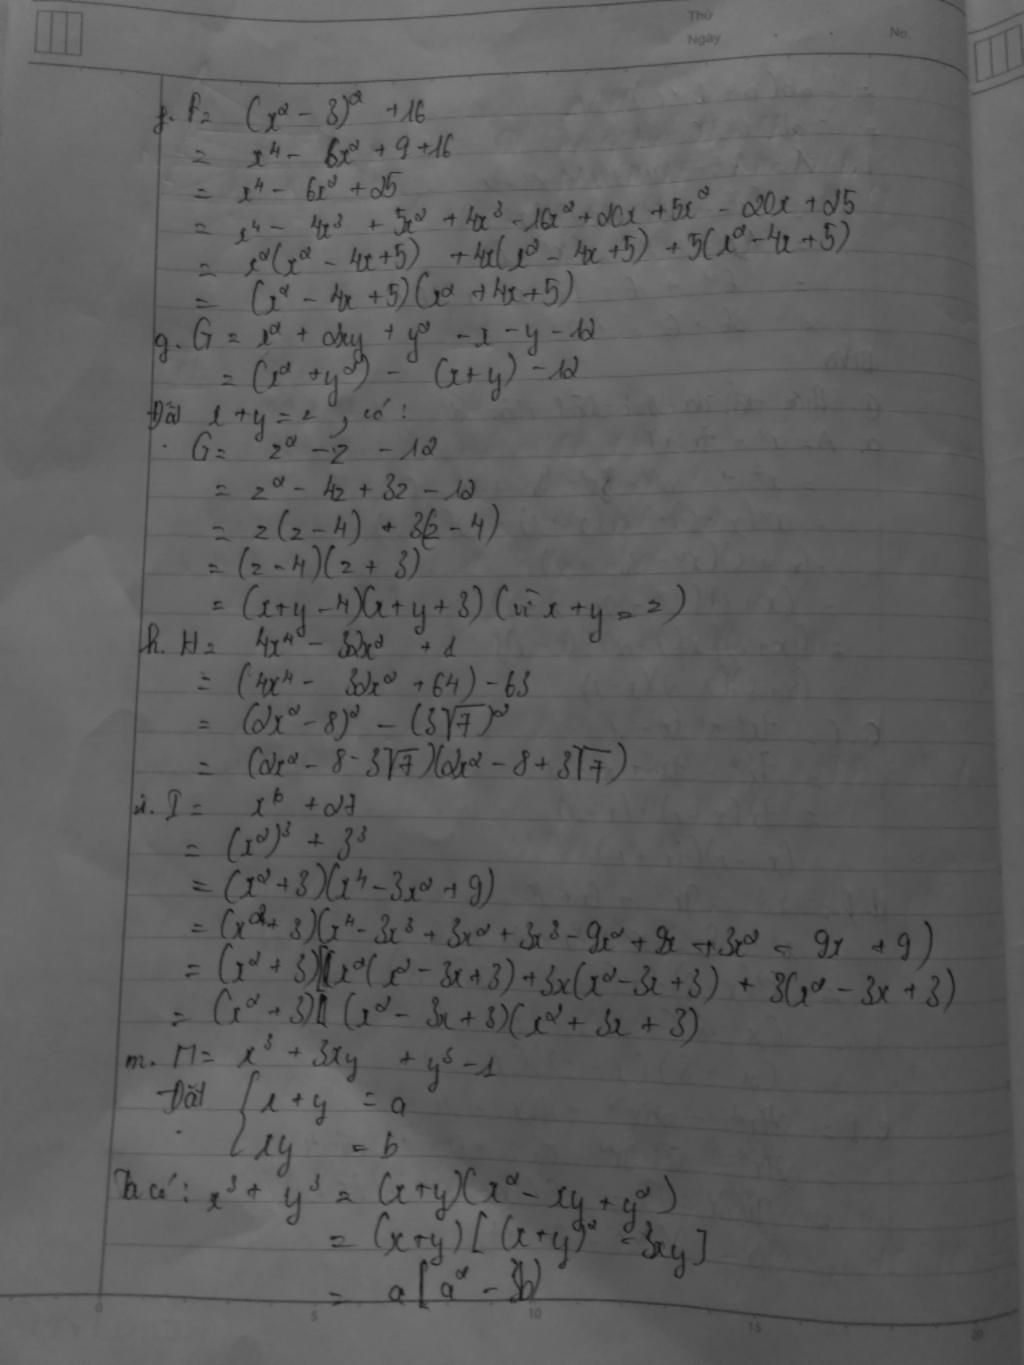 Thứ
Ngày
No.
f. F= (x² - 3)² + 16
= x⁴ - 6x² + 9 + 16
= x⁴ - 6x² + 25
= x⁴ - 4x³ + 5x² + 4x³ - 16x² + 20x + 5x² - 20x + 25
= x²(x² - 4x + 5) + 4x(x² - 4x + 5) + 5(x² - 4x + 5)
= (x² - 4x + 5)(x² + 4x + 5)
g. G = x² + 2xy + y² - x - y - 12
= (x² + y²) - (x + y) - 12
Đặt x + y = z, có:
G = z² - z - 12
= z² - 4z + 3z - 12
= z(z - 4) + 3(z - 4)
= (z - 4)(z + 3)
= (x + y - 4)(x + y + 3) (vì x + y = z)
h. H = 4x⁴ - 32x² + 1
= (4x⁴ - 32x² + 64) - 63
= (2x² - 8)² - (3√7)²
= (2x² - 8 - 3√7)(2x² - 8 + 3√7)
i. I = x⁶ + 27
= (x²)³ + 3³
= (x² + 3)(x⁴ - 3x² + 9)
= (x² + 3)(x⁴ - 3x³ + 3x² + 3x³ - 9x² + 9x + 3x² - 9x + 9)
= (x² + 3)[x²(x² - 3x + 3) + 3x(x² - 3x + 3) + 3(x² - 3x + 3)
= (x² + 3)[(x² - 3x + 3)(x² + 3x + 3)
m. M = x³ + 3xy + y³ - 1
Đặt { x + y = a
xy = b
Ta có: x³ + y³ = (x + y)(x² - xy + y²)
= (x + y)[(x + y)² - 3xy]
= a[a² - 3b)
0 5 10 15 20